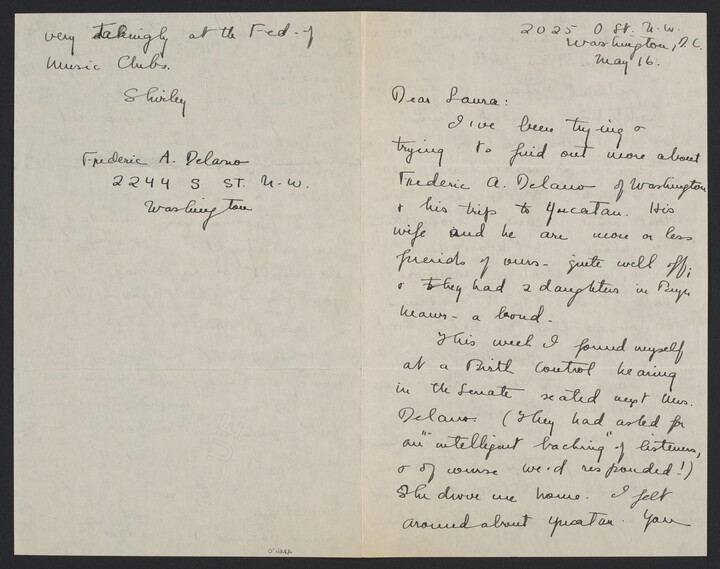 very takingly at the Fed. of
Music Clubs.
Shirley
Frederic A. Delano
2244 S ST. N.W.
Washington
2025 O St. N.W.
Washington, D.C.
May 16.
Dear Laura:
I've been trying &
trying to find out more about
Frederic A. Delano of Washington
& his trip to Yucatan. His
wife and he are more or less
friends of ours - quite well off;
& they had 2 daughters in Bryn
Mawr - a bond.
This week I found myself
at a Birth Control hearing
in the Senate seated next Mrs.
Delano. (They had asked for
an "intelligent backing" of listeners,
& of course we'd responded!)
She drove me home. I felt
around about Yucatan. You
O'HARA